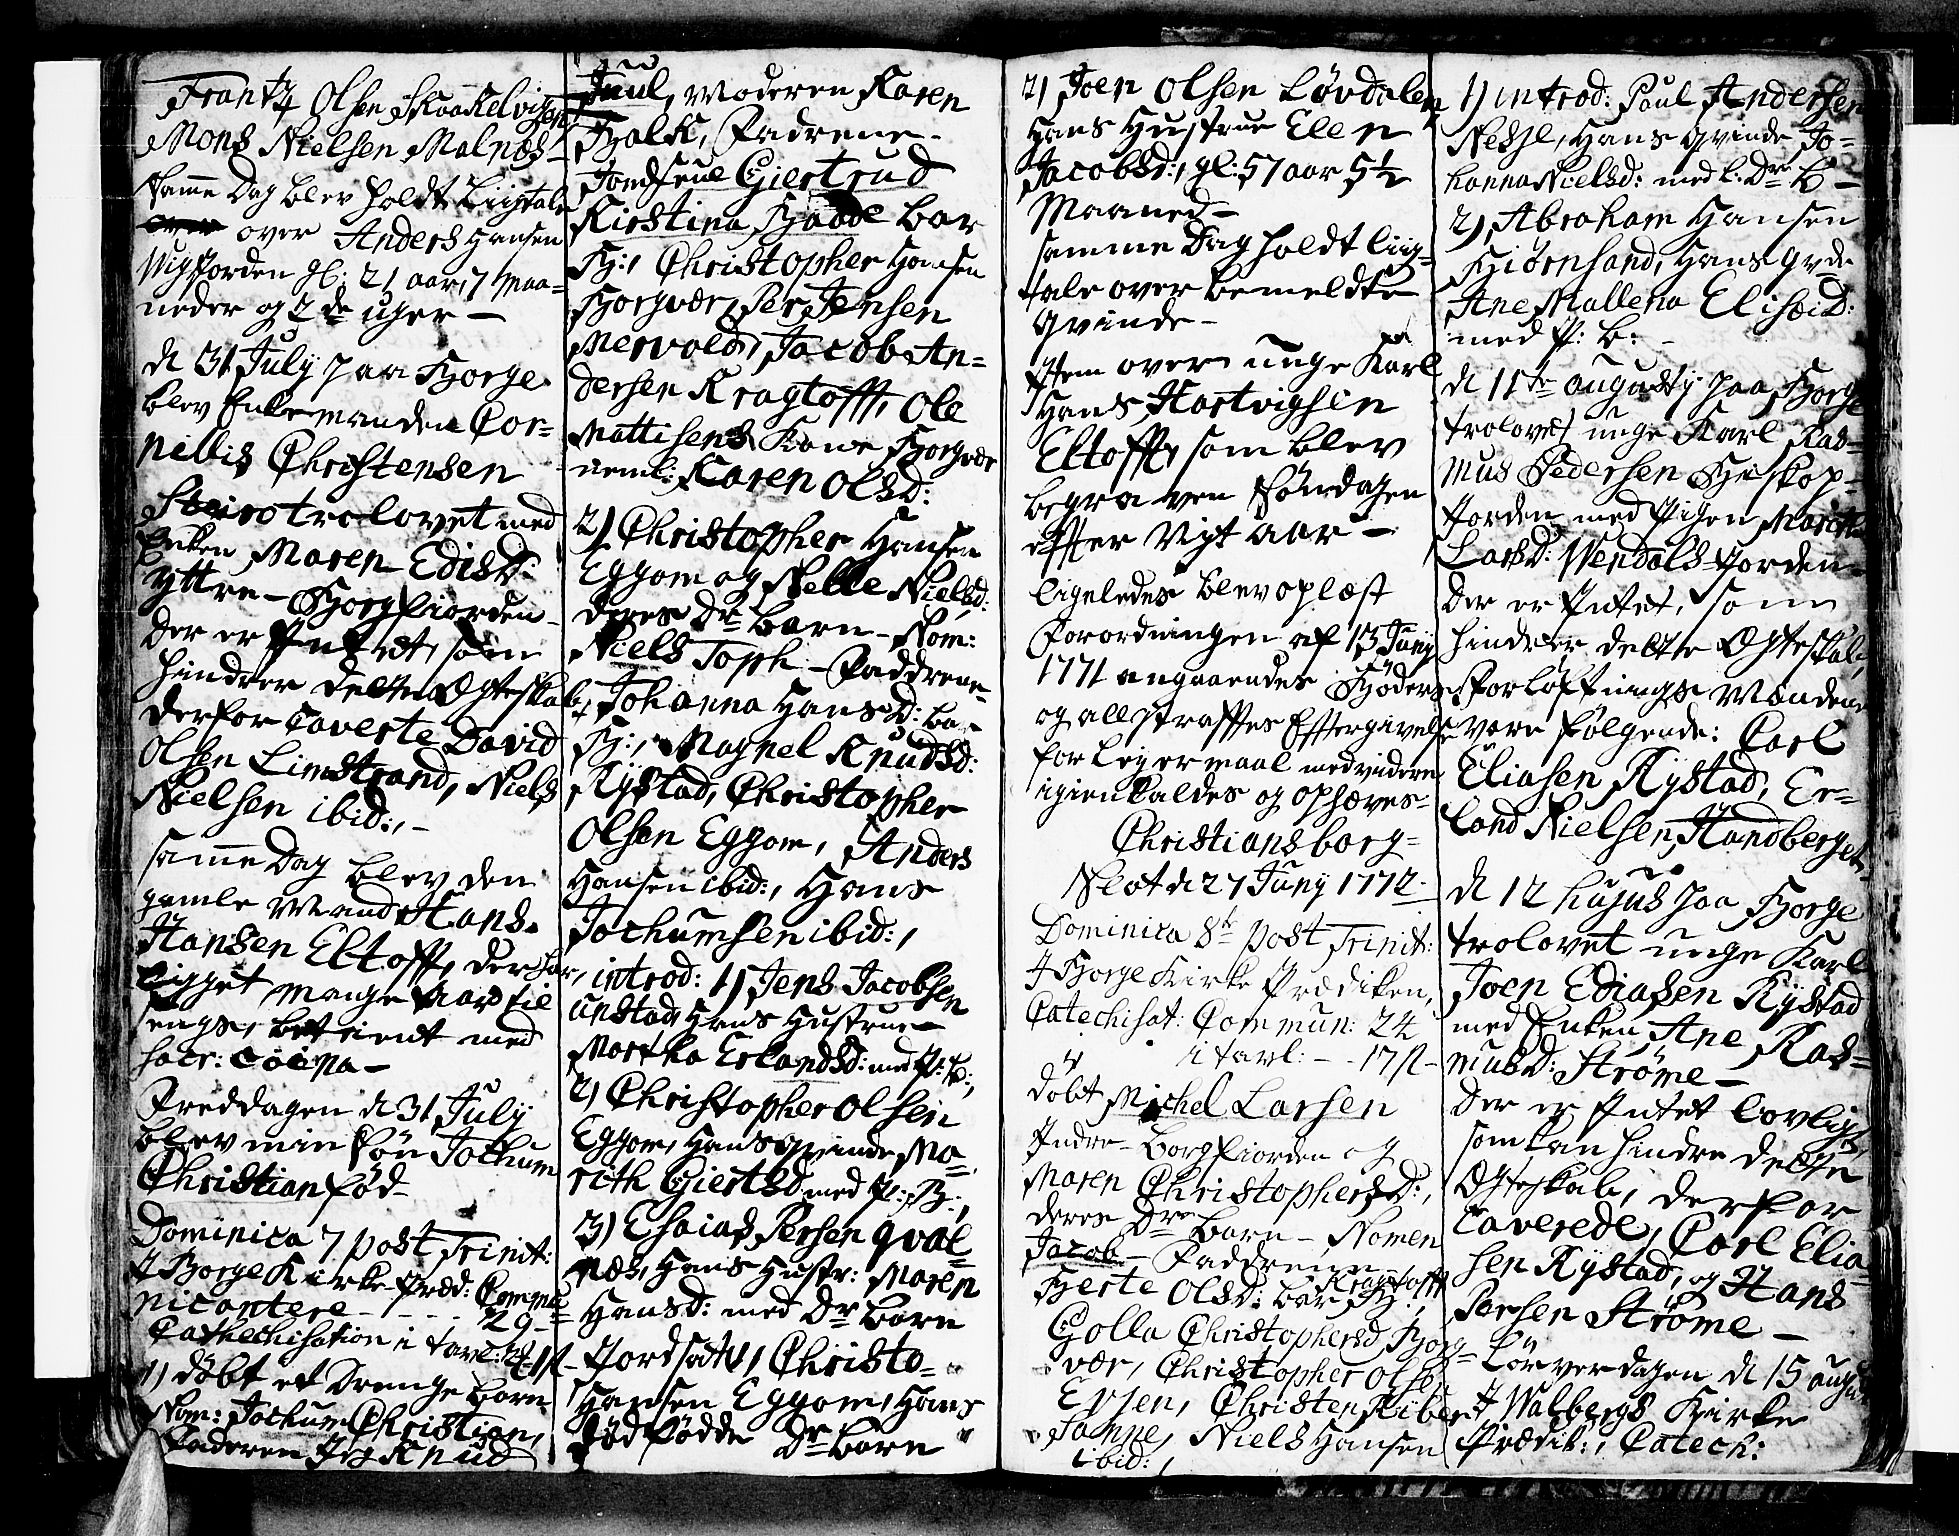 Frantz Olsen Skaakelvigen,
Mons Nielsen Malnæs
samme Dag blev holdt Liigtale
over Anders Hansen
Wigjorden gl: 21 aar, 7 Maa=
neder og 2de uger —
d 31 July paa Borge
blev Enkemanden Cor=
nellis Christensen
trolovet med
Enken Maren Edisd:
yttre Borgfiorden
Der er Intet, som
hindrer dette Ægteskab,
derfor Caverte David
Olsen Limstrand, Niels
Nielsen ibid:, —
samme Dag blev den
gamle Mand Hans
Hansen Eltofft, der har
ligget mange Aar til
sengs, betient med
sacr: coena —
Freddagen d 31 July
blev min Søn Jochum
Christian fød —
Dominica 7 post Trinit:
I Borge Kirke Præd: Commu=
nicantere — — 29 —
Cathechisation i tavl:
1) døbt et Drenge Barn
Nom: Jochum Christian,
Faderen Knud
Juul, Moderen Karen
Falck, Fadrene —
Jomfrue Giertrud
Kirstina Bar
Christopher Hansen
Borgvær, Per Jensen
Mervold, Jacob An=
dersen Kragtofft, Ole
Mattisens Kone Borgvær
neml: Karen Olsd:
2) Christopher Hansen
Eggom og Pelle Nielsd:
deres Dr Barn — Nom:
Niels Toph — Faddrene
Johanna Hansd: bar
Magnel Knudsd:
Rystad, Christopher
Olsen Eggom, Anders
Hansen ibid:, Hans
Jochumsen ibid:,
introd: 1) Jens Jacobsen
Unstad, Hans Hustrue
Martha Erlandsd: med P: B:,
2) Christopher Olsen
Eggom, Hans Qvinde Ma=
rith Giertsd med P: B:,
3) Esaias Persen Qval=
næs, Hans Hustr: Maren
Hansd: med Dr Barn
Jordsatt 1, Christo=
Hansen Eggom, Hans
Død fødde Dr Barn
2) Joen Olsen Løvdalen
Hans Hustrue Elen
Jacobsd:, gl: 57 aar 5½
Maaned —
samme Dag holdt liig=
tale over bemeldte
Qvinde —
Item over unge Karl
Hans Hartvigsen
Eltofft, som blev
begraven Søndagen
efter Nyt aar —
ligeledes blev oplæst
Forordningen af 13 Juny
1771 angaaendes
og all straffes Efftergivelse
for Leyermaal med videre
igienkaldes og ophæves —
Christiansborg=
Slot d 27 Juny 1772
Dominica 8t post Trinit:
I Borge Kirke Prædiken,
Catechisat: Commun: 24
i tavl: — 17 p —
døbt Michel Larsen
Indre — Borgfiorden og
Maren Christophersd:,
deres Dr Barn — Nomen
Jacob — Faddrene
Berte Olsd: bar Kragtofft
Golla Christophersd, Borg=
vær, Christopher Olsen
Christen
Niels Hansen
ibid:,
1) introd: Paul Andersen
Nesje, Hans Qvinde Jo=
hanna Nielsd: med l: Dr B —
2) Abraham Hansen
Biørnsand, Hans Qvde
Ane Mallena Eliseid:
med P: B: —
d 11te augusty paa Borge
trolovet unge Karl Ras=
mus Pedersen Biskop=
Jorden med Pigen Marith
Larsd: Wendals Jorden
Der er Intet, som
hindrer dette Ægteskab,
Forløftnings Mændene
vare følgende: Carl
Eliasen Rystad, Er=
land Nielsen Handberget,
d 12 hujus paa Borge
trolovet unge Karl
Joen Ediasen Rystad
med Enken Ane Ras=
musd: Strøme —
Der er Intet lovligt,
som kan hindre dette
Ægteskab, derfor
Caverede, Carl Elia=
sen Rystad, og Hans
Persen Strøme —
Løverdagen d 15 augu
I Walbergs Kirke
Prædik:, Catech: